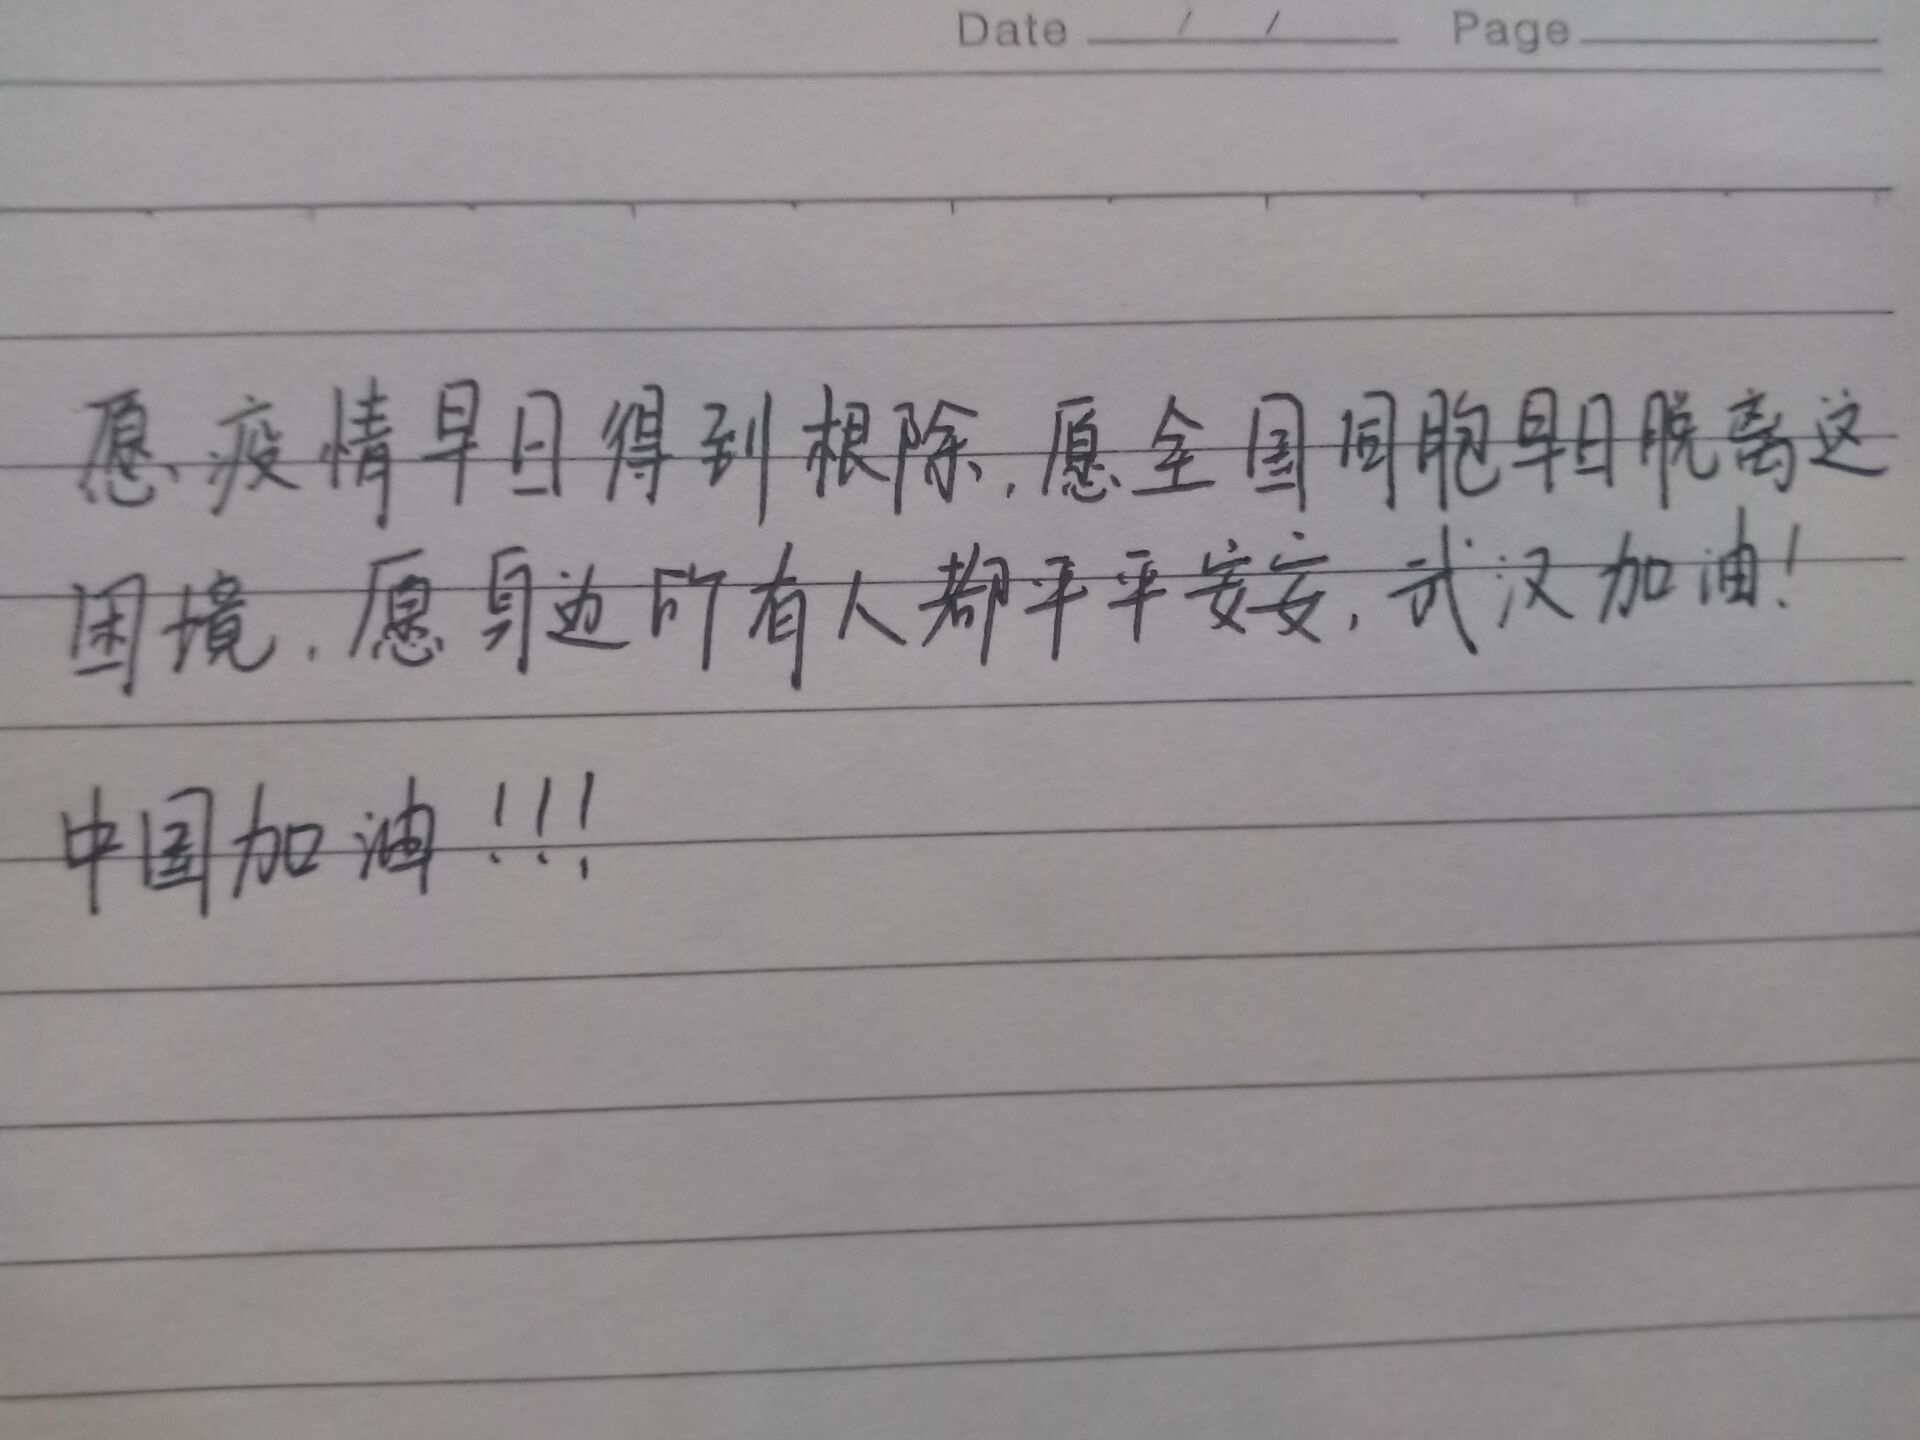 Date / / Page
愿疫情早日得到根除,愿全国同胞早日脱离这
困境,愿身边所有人都平平安安,武汉加油!
中国加油!!!